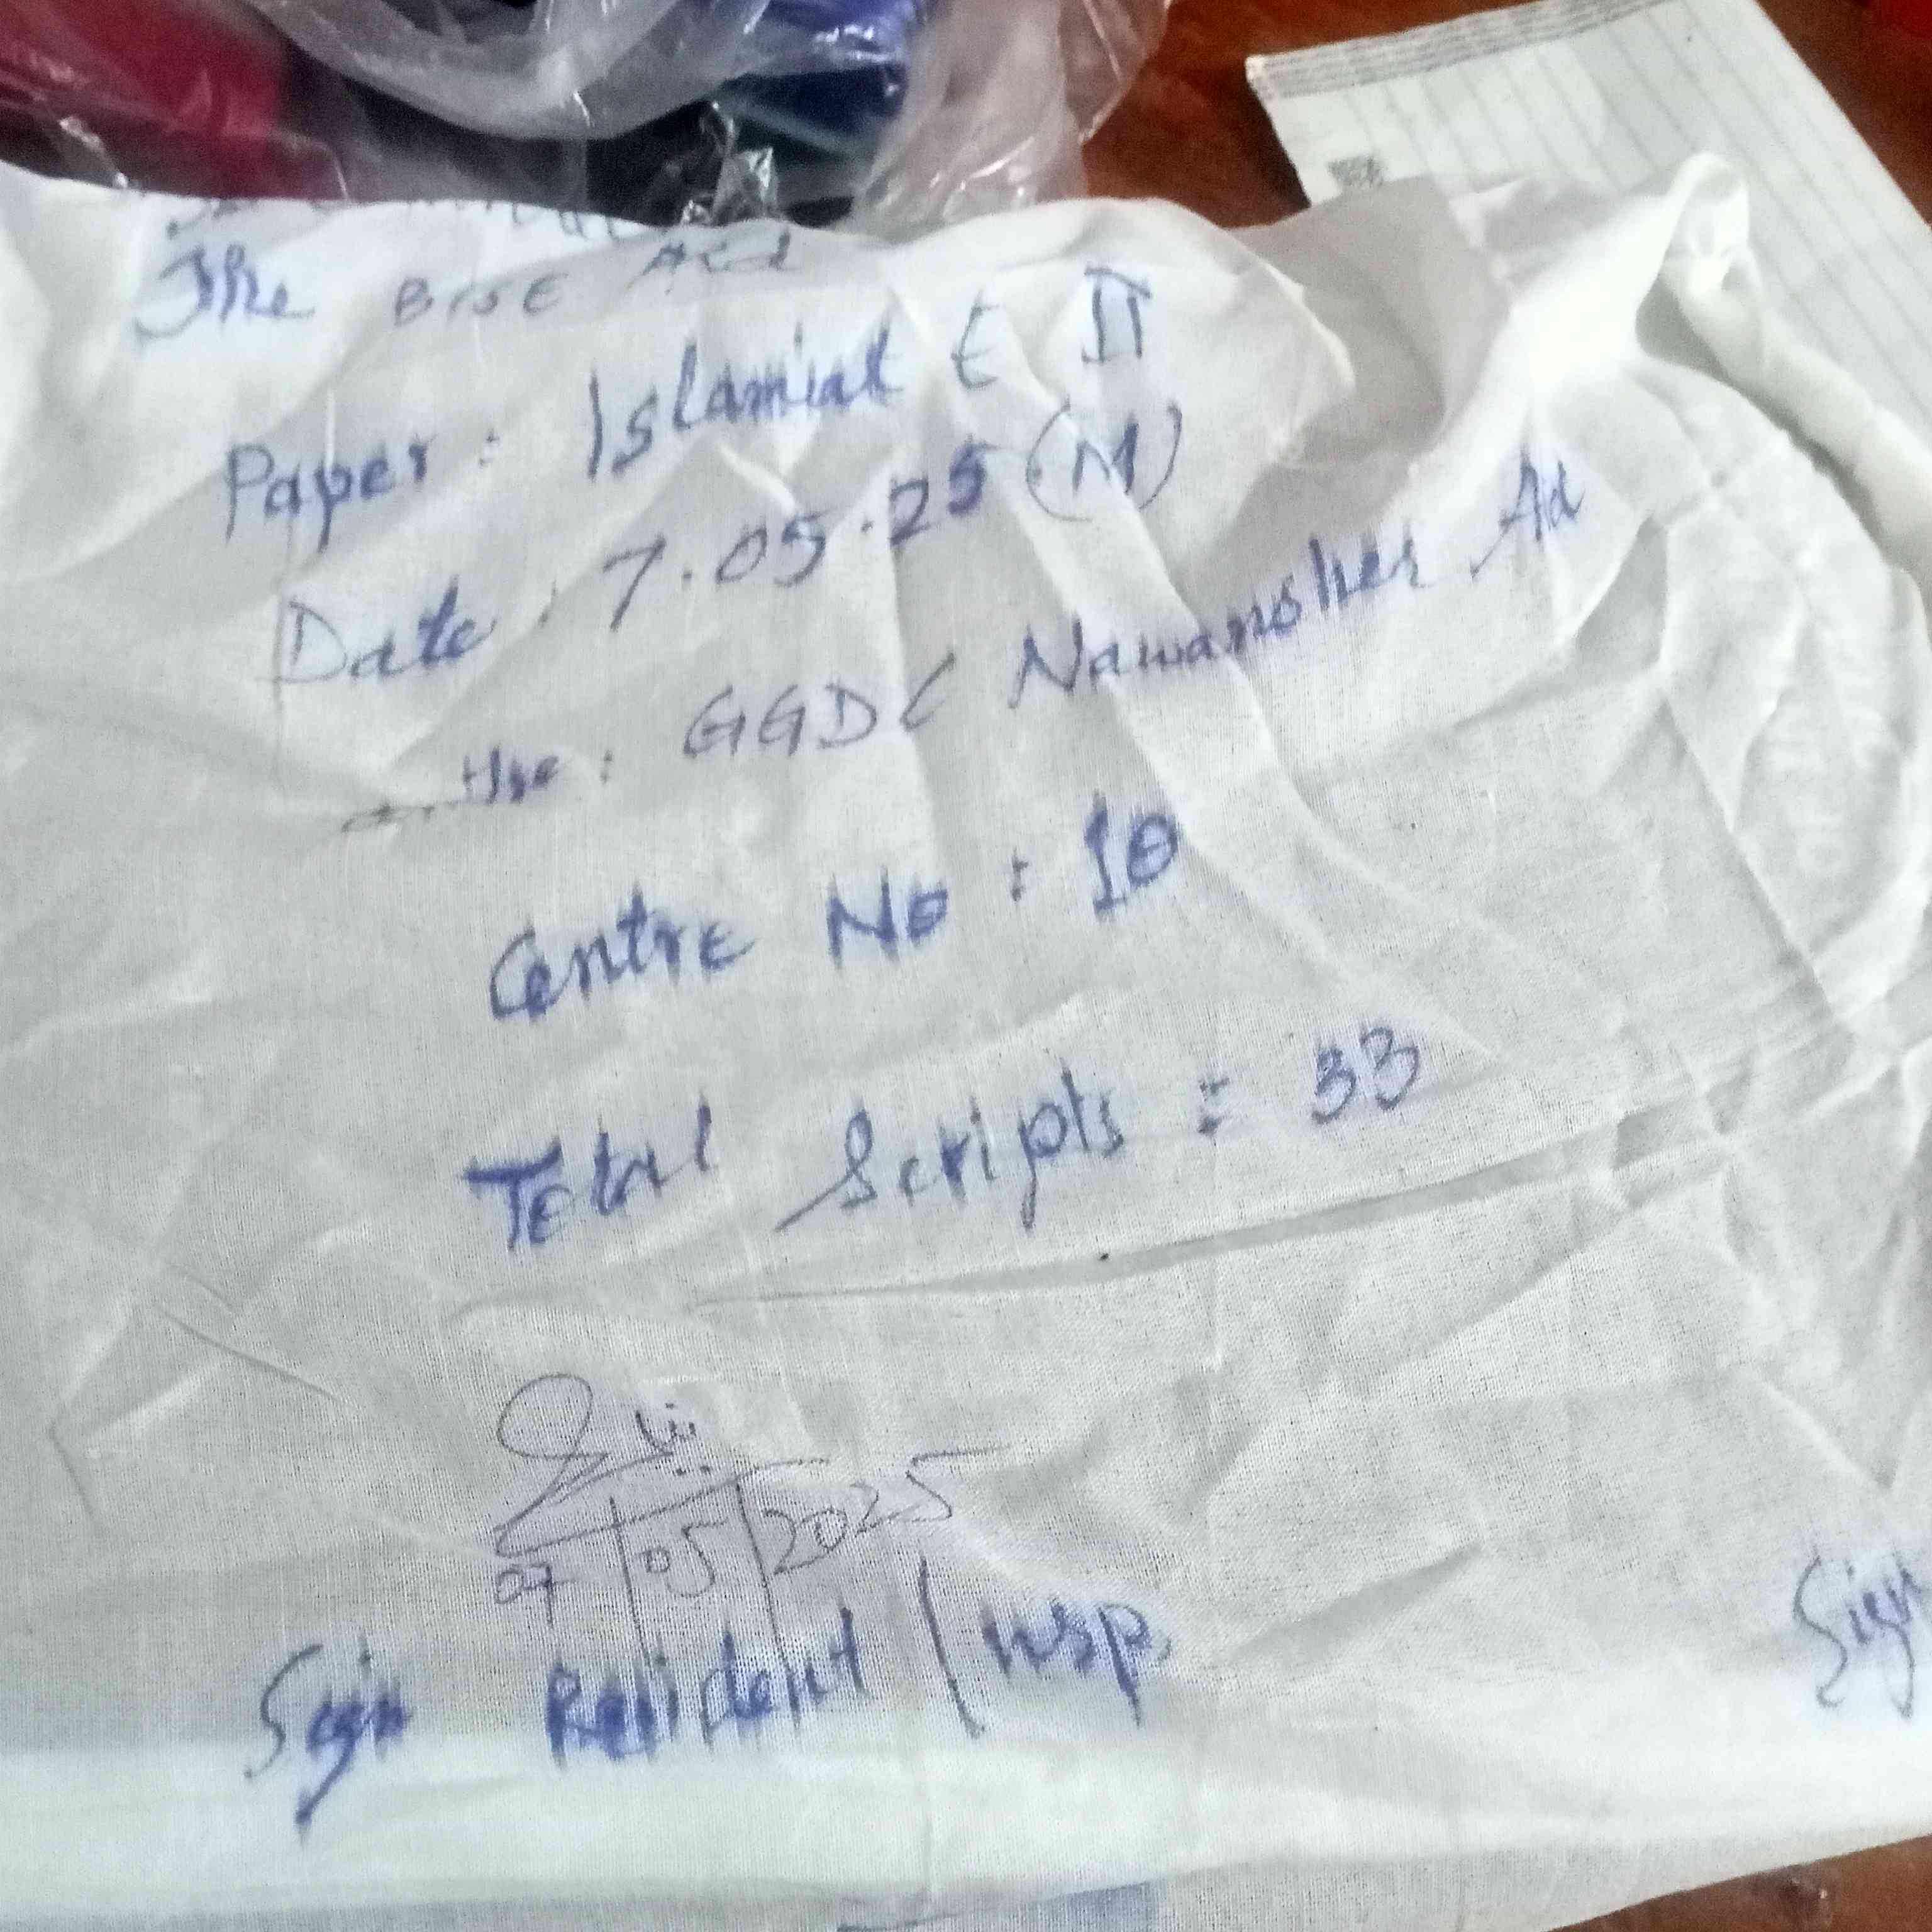 The BISE Atd
Paper: Islamiat E II
Date: 7.05.25 (M)
Centre: GGDC Nawansher Atd
Centre No: 10
Total Scripts = 33
07/05/2025
Sign Resident / Insp. Sign